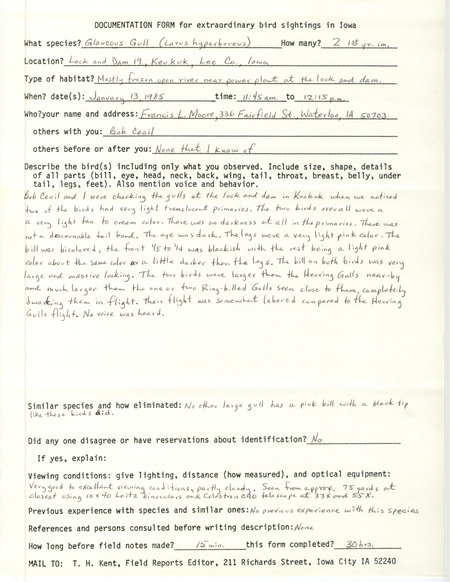 DOCUMENTATION FORM for extraordinary bird sightings in Iowa
What species? Glaucous Gull (Larus hyperboreus) How many? 2 1st yr. im.
Location? Lock and Dam 19, Keokuk, Lee Co., Iowa
Type of habitat? Mostly frozen open river near power plant at the lock and dam.
When? date(s): January 13, 1985 time: 11:45 am to 12:15 p.m.
Who? your name and address: Francis L. Moore, 336 Fairfield St., Waterloo, IA 50703
others with you: Bob Cecil
others before or after you: None that I know of
Describe the bird(s) including only what you observed. Include size, shape, details
of all parts (bill, eye, head, neck, back, wing, tail, throat, breast, belly, under
tail, legs, feet). Also mention voice and behavior.
Bob Cecil and I were checking the gulls at the lock and dam in Keokuk when we noticed
two of the birds had very light translucent primaries. The two birds overall were a
a very light tan to cream color. There was no darkness at all in the primaries. There was
not a descernable tail band. The eye was dark. The legs were a very light pink color. The
bill was bicolored, the front 1/5 to 1/4 was blackish with the rest being a light pink
color about the same color or a little darker than the legs. The bill on both birds was very
large and massive looking. The two birds were larger them the Herring Gulls near-by
and much larger them the one or two Ring-billed Gulls seen close to them, completely
dwarfing them in flight. Their flight was somewhat labored compared to the Herring
Gulls flight. No voice was heard.
Similar species and how eliminated: No other large gull has a pink bill with a black tip
like these birds did.
Did any one disagree or have reservations about identification? No
If yes, explain:
Viewing conditions: give lighting, distance (how measured), and optical equipment:
Very good to excellent viewing conditions, partly cloudy. Seen from approx. 75 yards at
closest using 10x40 Leitz binoculars and Celestron C90 telescope at 33X and 55X.
Previous experience with species and similar ones: No previous experience with this species
References and persons consulted before writing description: None
How long before field notes made? 15 min. this form completed? 30 hrs.
MAIL TO: T. H. Kent, Field Reports Editor, 211 Richards Street, Iowa City IA 52240